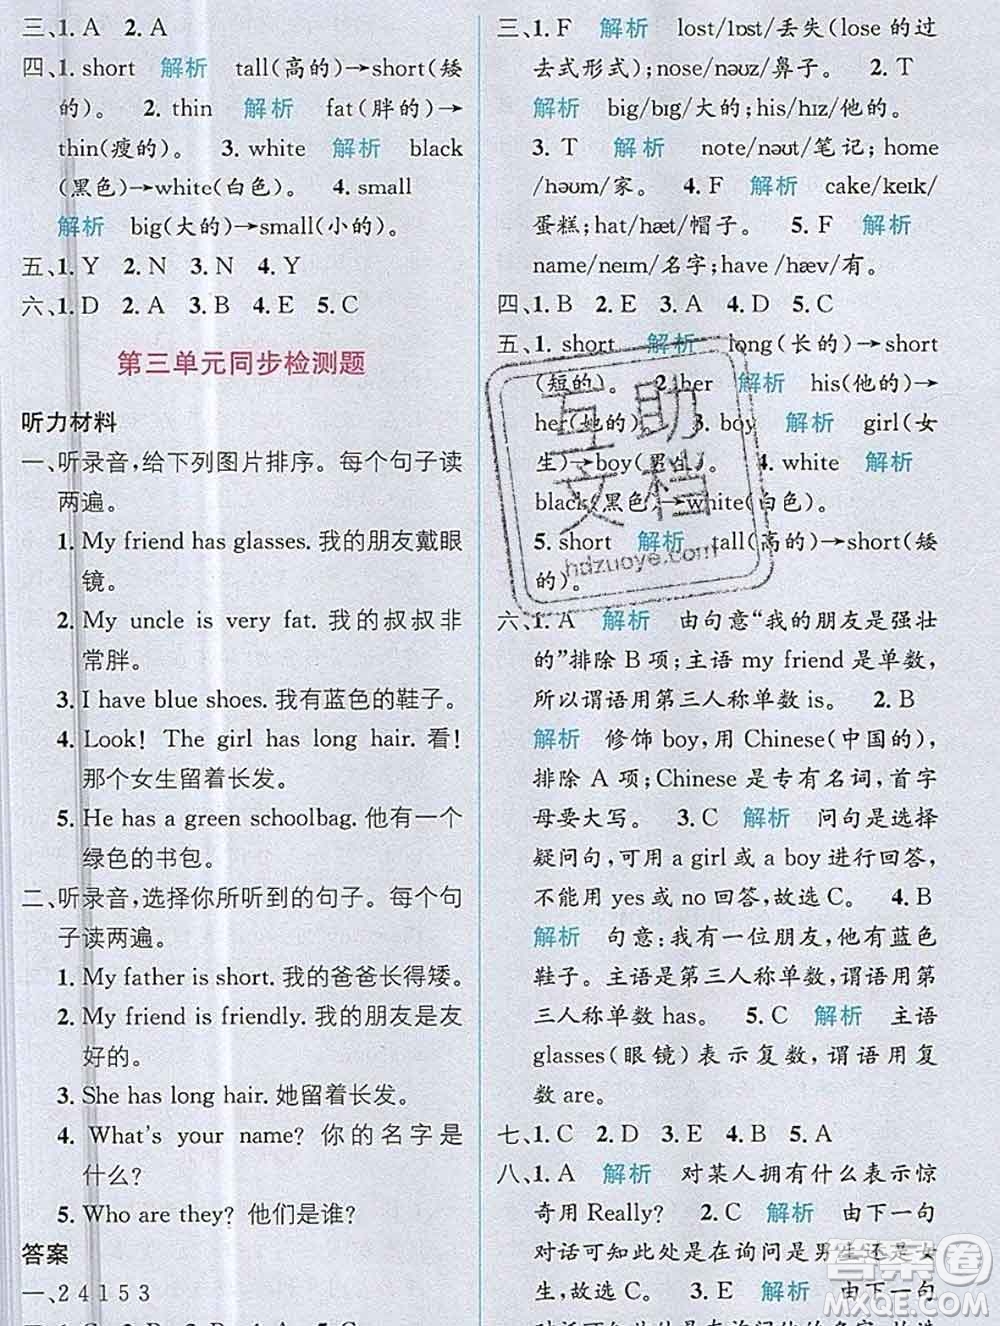 三、1. A　2. A
四、1. short　解析　tall(高的)→short(矮
的)。　2. thin　解析　fat(胖的)→
thin(瘦的)。　3. white　解析　black
(黑色)→white(白色)。　4. small
解析　big(大的)→small(小的)。
五、1. Y　2. N　3. N　4. Y
六、1. D　2. A　3. B　4. E　5. C
第三单元同步检测题
听力材料
一、听录音,给下列图片排序。每个句子读
两遍。
1. My friend has glasses. 我的朋友戴眼
镜。
2. My uncle is very fat. 我的叔叔非
常胖。
3. I have blue shoes. 我有蓝色的鞋子。
4. Look! The girl has long hair. 看!
那个女生留着长发。
5. He has a green schoolbag. 他有一个
绿色的书包。
二、听录音,选择你所听到的句子。每个句
子读两遍。
1. My father is short. 我的爸爸长得矮。
2. My friend is friendly. 我的朋友是友
好的。
3. She has long hair. 她留着长发。
4. What's your name? 你的名字是
什么?
5. Who are they? 他们是谁?
答案
一、2 4 1 5 3
三、1. F　解析　lost/lɒst/丢失(lose 的过
去式形式);nose/nəʊz/鼻子。　2. T
解析　big/bɪg/大的;his/hɪz/他的。
3. T　解析　note/nəʊt/笔记;home
/həʊm/家。　4. F　解析　cake/keɪk/
蛋糕;hat/hæt/帽子。　5. F　解析
name/neɪm/名字;have /hæv/有。
四、1. B　2. E　3. A　4. D　5. C
五、1. short　解析　long(长的)→short
(短的)。　2. her　解析　his(他的)→
her(她的)。　3. boy　解析　girl(女
生)→boy(男生)。　4. white　解析
black(黑色)→white(白色)。
5. short　解析　tall(高的)→short(矮
的)。
六、1. A　解析　由句意“我的朋友是强壮
的”排除 B 项;主语 my friend 是单数,
所以谓语用第三人称单数 is。　2. B
解析　修饰 boy,用 Chinese(中国的),
排除 A 项;Chinese 是专有名词,首字
母要大写。　3. C　解析　问句是选择
疑问句,可用 a girl 或 a boy 进行回答,
不能用 yes 或 no 回答,故选 C。　4. B
解析　句意:我有一位朋友,他有蓝色
鞋子。主语是第三人称单数,谓语用第
三人称单数 has。　5. C　解析　主语
glasses(眼镜)表示复数,谓语用复
数 are。
七、1. C　2. D　3. E　4. B　5. A
八、1. A　解析　对某人拥有什么表示惊
奇用 Really?　2. C　解析　由下一句
对话可知此处是在询问是男生还是女
生,故选 C。　3. E　解析　由下一句
互助
文档
hdzuoye.com
答案圈
MXQE.COM